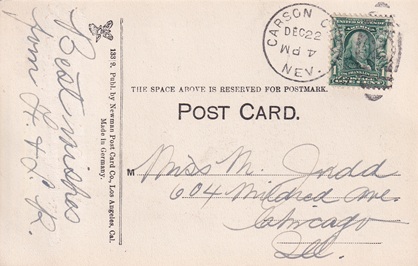 Best wishes
from H. & L. R.
133/2. Publ. by Newman Post Card Co., Los Angeles, Cal.
Made in Germany.
CARSON C
DEC 22
4 PM
NEV.
1
THE SPACE ABOVE IS RESERVED FOR POSTMARK.
POST CARD.
M Miss M. Judd
604 Mildred Ave.
Chicago
Ill.